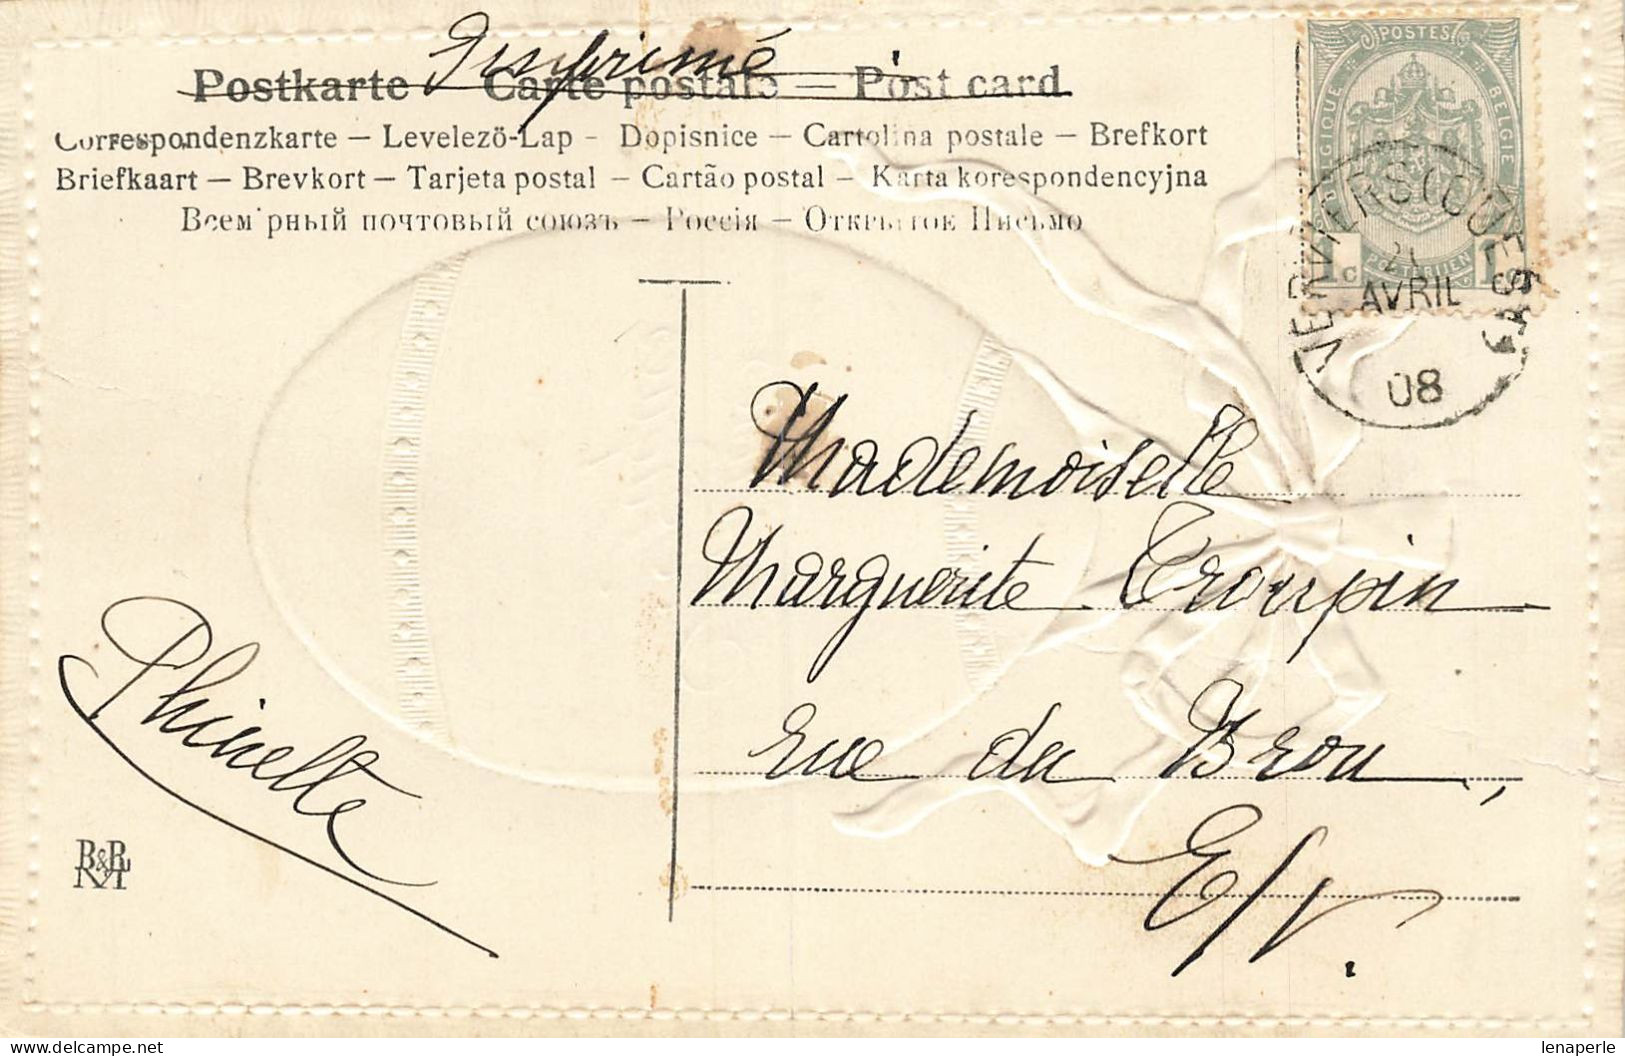 Imprimé
Postkarte – Carte postale – Post card
Correspondenzkarte – Levelező-Lap – Dopisnice – Cartolina postale – Brefkort
Briefkaart – Brevkort – Tarjeta postal – Cartão postal – Karta korespondencyjna
Всемірный почтовый союзъ – Россія – Открытое Письмо
POSTES
BELGIQUE BELGIE
1 C POSTERIJEN 1 C
VERVIERS (OUEST)
21
AVRIL
08
Mademoiselle
Marguerite Troupin
rue du Brou,
E/V.
Phinette
lenaperle